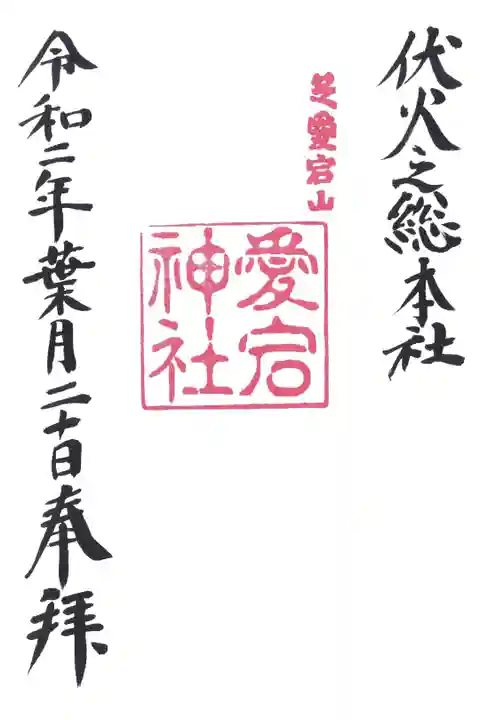 伏火之總本社
芝愛宕山
愛宕
神社
令和二年葉月二十日奉拜